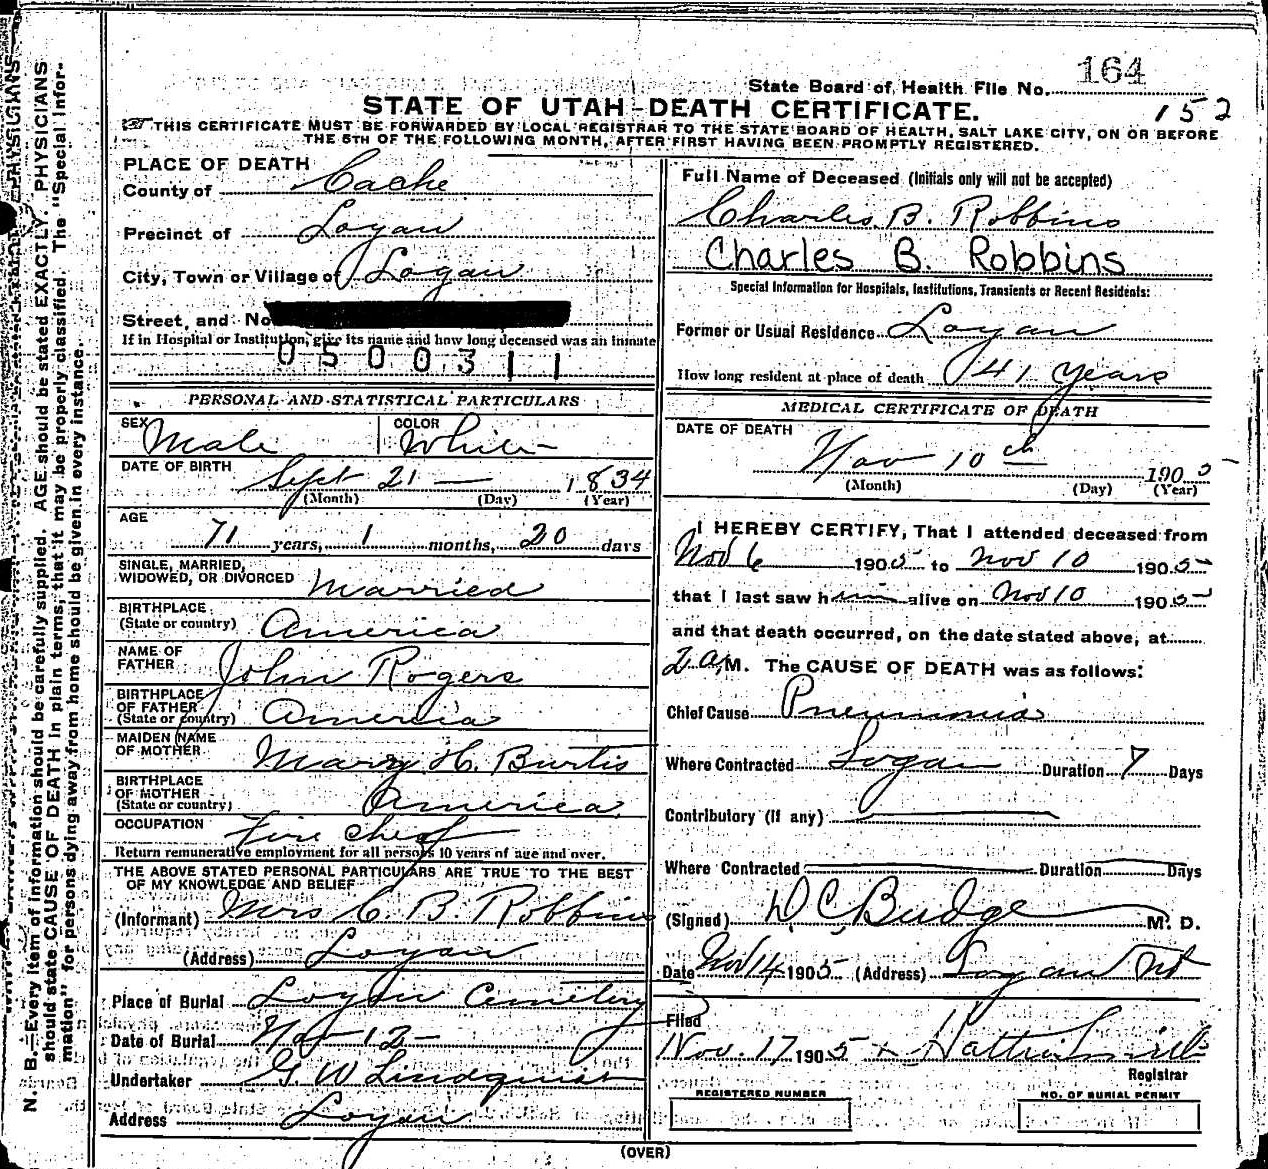 164
State Board of Health File No.
152
STATE OF UTAH-DEATH CERTIFICATE.
THIS CERTIFICATE MUST BE FORWARDED BY LOCAL REGISTRAR TO THE STATE BOARD OF HEALTH, SALT LAKE CITY, ON OR BEFORE
THE 5TH OF THE FOLLOWING MONTH, AFTER FIRST HAVING BEEN PROMPTLY REGISTERED.
N. B.—Every item of information should be carefully supplied. AGE should be stated EXACTLY. PHYSICIANS
should state CAUSE OF DEATH in plain terms, that it may be properly classified. The "Special Infor-
mation" for persons dying away from home should be given in every instance.
PLACE OF DEATH
County of Cache
Precinct of Logan
City, Town or Village of Logan
Street, and No.
If in Hospital or Institution, give its name and how long deceased was an inmate
0500311
PERSONAL AND STATISTICAL PARTICULARS
SEX Male COLOR White
DATE OF BIRTH Sept 21 — 1834
(Month) (Day) (Year)
AGE
71 years, 1 months, 20 days
SINGLE, MARRIED,
WIDOWED, OR DIVORCED Married
BIRTHPLACE
(State or country) America
NAME OF
FATHER John Rogers
BIRTHPLACE
OF FATHER
(State or country) America
MAIDEN NAME
OF MOTHER Mary H. Burtis
BIRTHPLACE
OF MOTHER
(State or country) America
OCCUPATION Fire chef
Return remunerative employment for all persons 10 years of age and over.
THE ABOVE STATED PERSONAL PARTICULARS ARE TRUE TO THE BEST
OF MY KNOWLEDGE AND BELIEF
(Informant) Mrs C. B. Robbins
(Address) Logan
Place of Burial Logan Cemetery
Date of Burial Nov 12 —
Undertaker G W Lindquist
Address Logan
Full Name of Deceased (Initials only will not be accepted)
Charles B. Robbins
Charles B. Robbins
Special Information for Hospitals, Institutions, Transients or Recent Residents:
Former or Usual Residence Logan
How long resident at place of death 41 years
MEDICAL CERTIFICATE OF DEATH
DATE OF DEATH
Nov 10th 1905
(Month) (Day) (Year)
I HEREBY CERTIFY, That I attended deceased from
Nov 6 1905 to Nov 10 1905
that I last saw him alive on Nov 10 1905
and that death occurred, on the date stated above, at
2 a M. The CAUSE OF DEATH was as follows:
Chief Cause Pneumonia
Where Contracted Logan Duration 7 Days
Contributory (If any)
Where Contracted Duration Days
(Signed) D C Budge M. D.
Date Nov 14 1905 (Address) Logan Ut
Filed
Nov. 17 1905 Hattie Smith
Registrar
REGISTERED NUMBER
NO. OF BURIAL PERMIT
(OVER)